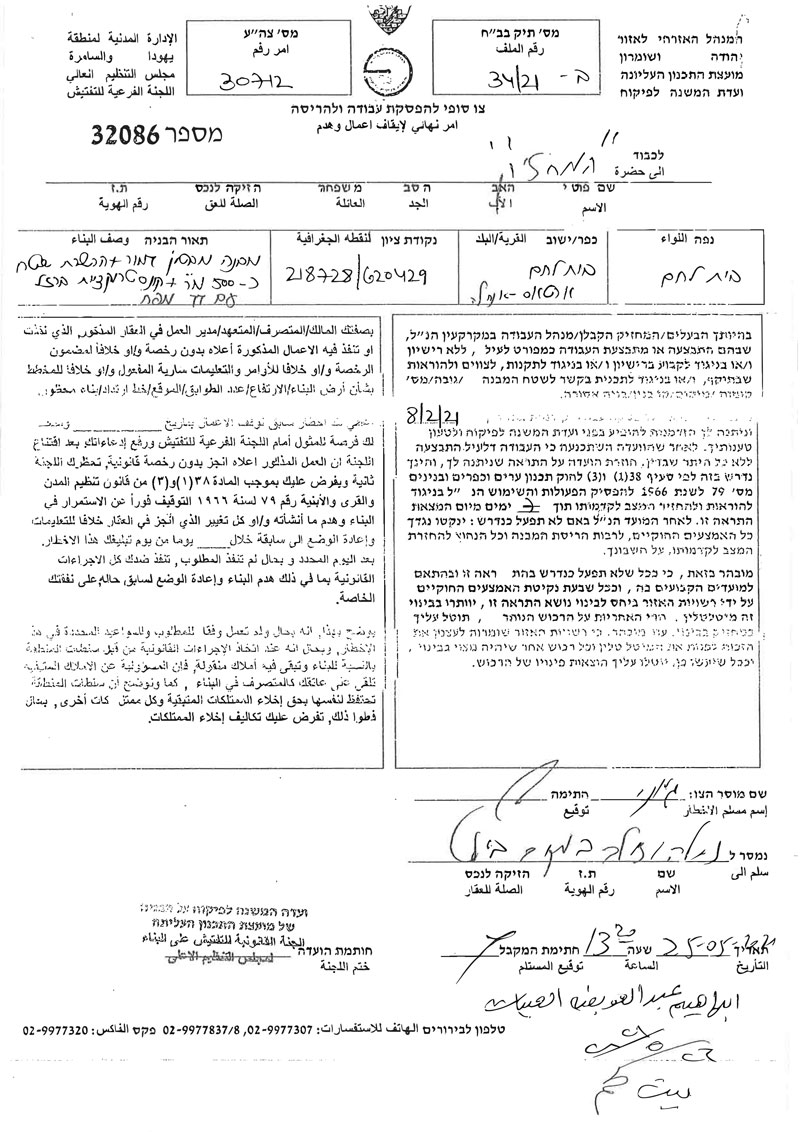 המנהל האזרחי לאזור
יהודה ושומרון
מועצת התכנון העליונה
ועדת המשנה לפיקוח
מס' תיק בב"ח
رقم الملف
ב- 34/21
מס' צה"ע
امر رقم
30712
الإدارة المدنية لمنطقة
يهودا والسامرة
مجلس التنظيم العالي
اللجنة الفرعية للتفتيش
צו סופי להפסקת עבודה ולהריסה
امر نهائي لإيقاف اعمال وهدم
מספר 32086
לכבוד
الى حضرة
"המחזיק"
שם פרטי האב הסב משפחה הזיקה לנכס ת.ז
الاسم الأب الجد العائلة الصلة للعق رقم الهوية
נפה اللواء
בית לחם
כפר/ישוב القرية/البلد
בית לחם
ארטאס -
נקודת ציון لنقطه الجغرافية
218728/620429
תאור הבניה وصف البناء
מבנה
כ-500 מ"ר + קונסטרוקציית ברזל
עם גג
בהיותך הבעלים/המחזיק הקבלן/מנהל העבודה במקרקעין הנ"ל,
שבהם התבצעה או מתבצעת העבודה כמפורט לעיל, ללא רישיון
ו/או בניגוד לקבוע ברישיון ו/או בניגוד לתקנות, לצווים ולהוראות
שבתוקף, ו/או בניגוד לתכנית בקשר לשטח המבנה /גובה/מס'
קומות
8/2/21
וניתנה לך הזדמנות להופיע בפני ועדת המשנה לפיקוח ולטעון
טענותיך. לאחר שהוועדה השתכנעה כי העבודה דלעיל התבצעה
ללא כל היתר שבדין, חוזרת הועדה על התראה שניתנה לך, והינך
נדרש בזה לפי סעיף 38(1) ו(3) לחוק תכנון ערים וכפרים ובנינים
מס' 79 לשנת 1966 להפסיק הפעולות והשימוש הנ"ל בניגוד
להוראות ולהחזיר המצב לקדמותו תוך 7 ימים מיום המצאת
התראה זו. לאחר המועד הנ"ל באם לא תפעל כנדרש: ינקטו נגדך
כל האמצעים החוקיים, לרבות הריסת המבנה וכל הנחוץ להחזרת
המצב לקדמותו, על חשבונך.
מובהר בזאת, כי ככל שלא תפעל כנדרש בהתראה זו ובהתאם
למועדים הקבועים בה, וככל שבעת נקיטת האמצעים החוקיים
על ידי רשויות האזור ביחס לבינוי נושא התראה זו, יוותרו בבינוי
זה מיטלטלין, הרי האחריות על הרכוש הנותר, תוטל עליך
כמחזיק בבינוי. עוד מובהר, כי רשויות האזור שומרות לעצמן את
הזכות לפנות את המיטלטלין וכל רכוש אחר שיהיה מצוי בבינוי,
וככל שיעשו כן, יוטלו עליך הוצאות פינויו של הרכוש.
بصفتك المالك/المتصرف/المتعهد/مدير العمل في العقار المذكور, الذي نفذت
او تنفذ فيه الاعمال المذكورة أعلاه بدون رخصة و/او خلافا لمضمون
الرخصة و/او خلافا للأوامر والتعليمات سارية المفعول و/او خلافا للمخطط
بشأن أرض البناء/الارتفاع/عدد الطوابق/الموقع/خط ارتداد/بناء محظور.
لك فرصة للمثول أمام اللجنة الفرعية للتفتيش ورفع إدعاءاتك, وبعد اقتناع
اللجنة ان العمل المذكور اعلاه انجز بدون رخصة قانونية, تحظرك اللجنة
ثانية ويفرض عليك بموجب المادة ٣٨(١)و(٣) من قانون تنظيم المدن
والقرى والأبنية رقم ٧٩ لسنة ١٩٦٦ التوقيف فوراً عن الاستمرار في
البناء وهدم ما أنشأته و/او كل تغيير الذي انجز في العقار خلافا للتعليمات
وإعادة الوضع الى سابقة خلال____ يوما من يوم تبليغك هذا الاخطار.
بعد اليوم المحدد و بحال لم تنفذ المطلوب, تنفذ ضدك كل الاجراءات
القانونية بما في ذلك هدم البناء وإعادة الوضع لسابق حاله, على نفقتك
الخاصة.
يوضح بهذا, انه بحال ولم تعمل وفقا للمطلوب وللمواعيد المحددة في هذا
الاخطار, وبحال انه عند اتخاذ الإجراءات القانونية من قبل سلطات المنطقة
بالنسبة للبناء وتبقى فيه أملاك منقولة, فان المسؤولية عن الاملاك المتبقية
تلقى على عاتقك كالمتصرف في البناء, كما ونوضح ان سلطات المنطقة
تحتفظ لنفسها بحق إخلاء الممتلكات المتبقية وكل ممتلكات أخرى, بحال
فعلوا ذلك, تفرض عليك تكاليف إخلاء الممتلكات.
שם מוסר הצו: חתימה
إسم مسلم الاخطار توقيع
נמסר ל
سلم الى
שם ת.ז הזיקה לנכס
الاسم رقم الهوية الصلة للعقار
תאריך 25-05-2021 שעה 13 חתימת המקבל
التأريخ الساعة توقيع المستلم
ועדה המשנה לפיקוח על הבניה
של מועצת התכנון העליונה
اللجنة القانونية للتفتيش على البناء
لمجلس التنظيم الاعلى
חותמת הועדה
ختم اللجنة
ابراهيم عبد
بيت لحم
טלפון לבירורים الهاتف للاستفسارات: 02-9977307, 02-9977837/8 פקס الفاكس: 02-9977320